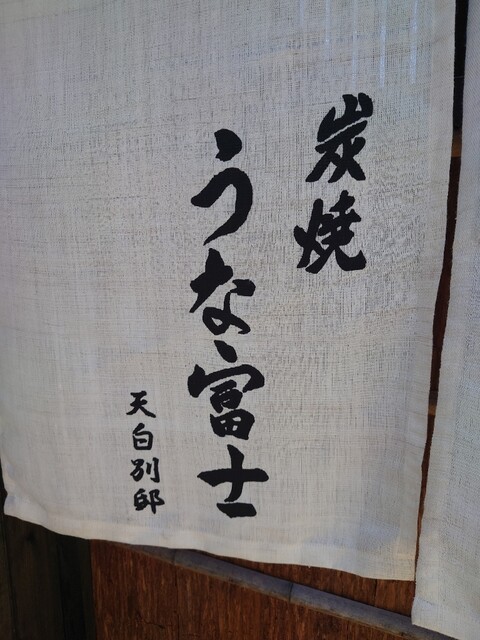 炭焼
うな富士
天白別邸